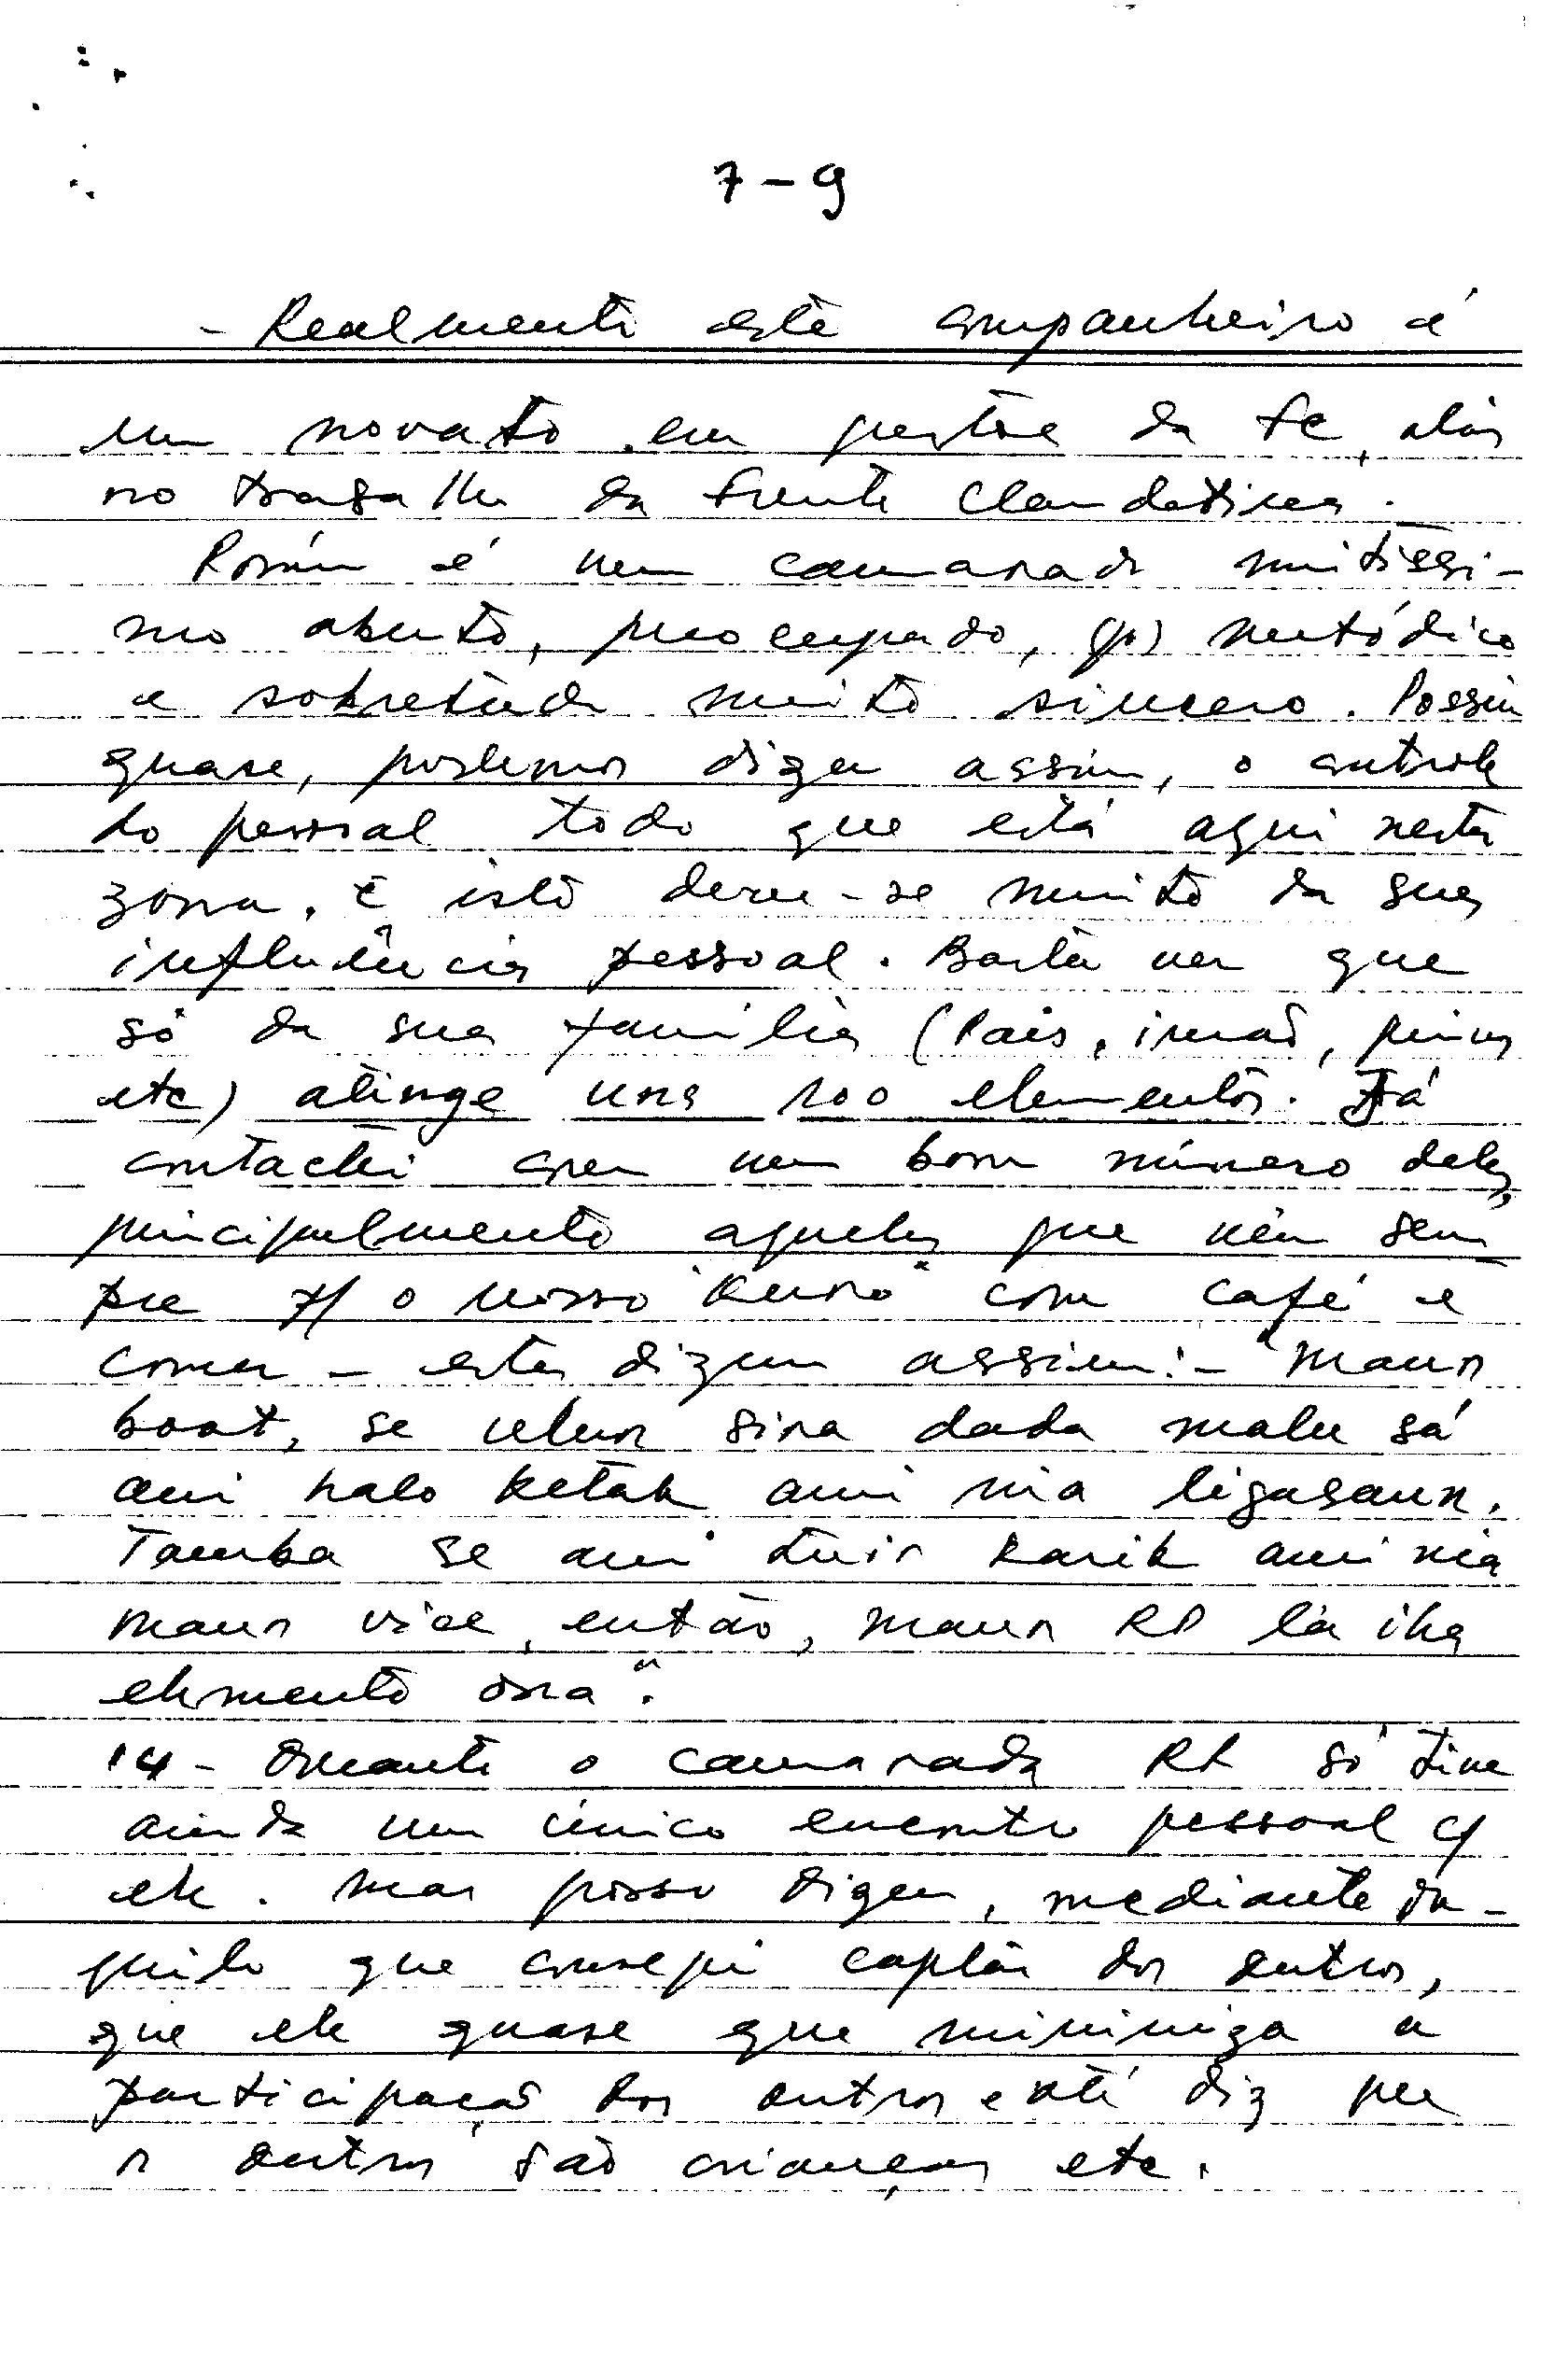 7-9
- Realmente este companheiro é
um novato em questões da fc, aliás
no trabalho da frente clandestina.
é um camarada muitíssi-
mo aberto, preocupado, metódico
e sobretudo muito sincero. Possui
quase, podemos dizer assim, o controle
do pessoal todo que está aqui nesta
zona. E isto deve-se muito da sua
influência pessoal. Basta ver que
só da sua família (Pais, irmãos, primos
etc) atinge uns 100 elementos. Já
contactei com um bom número deles,
principalmente aqueles que vêm sem-
pre p/ o nosso "Kuro" com café e
comer - estes dizem assim: - "Maun
boot, se ulun sira dada malu sá
ami halo ketak ami nia ligasaun.
Tamba se ami tuir karik ami nia
maun vice, então, maun RP la iha
elemento ona".
14 - Quanto o camarada só tive
ainda um único encontro pessoal c/
ele. Mas posso dizer, mediante da-
quilo que consegui captar dos outros,
que ele quase que minimiza a
participação dos outros e até diz que
os outros são crianças etc.